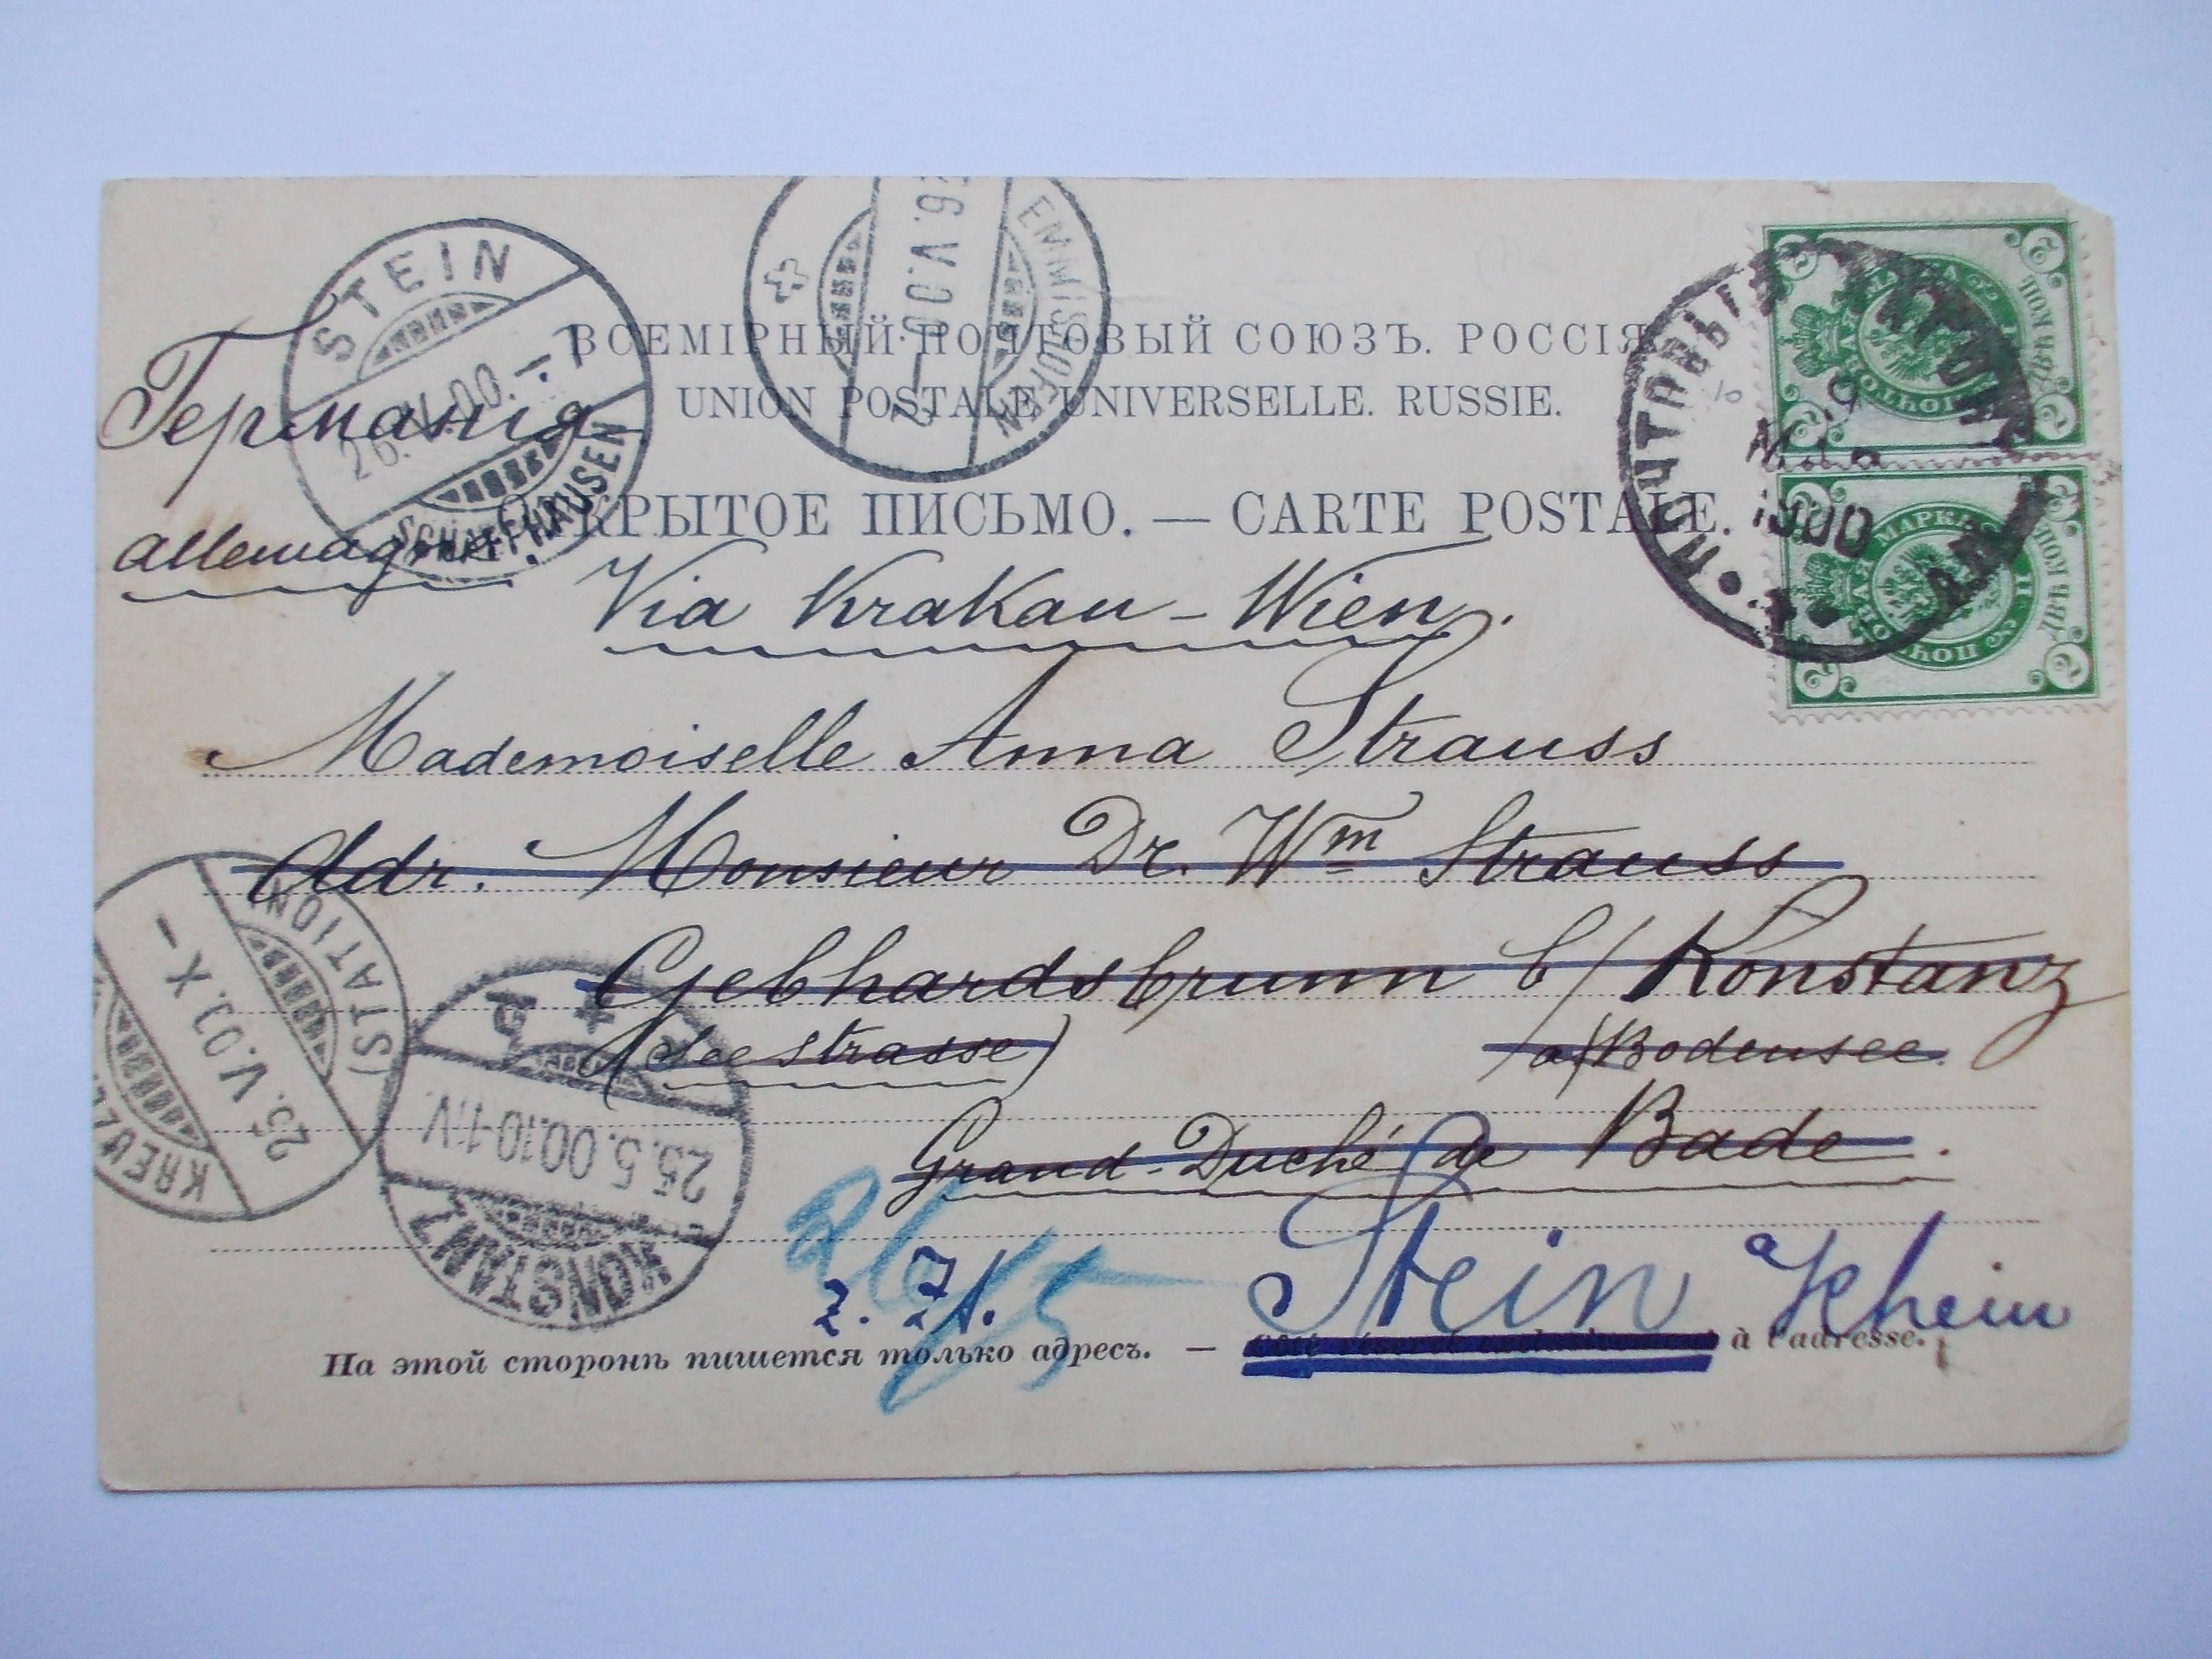 STEIN
26.V.00.-7
SCHAFFHAUSEN
26.V.00.-7
EMMISHOFEN
ВСЕМІРНЫЙ ПОЧТОВЫЙ СОЮЗЪ. РОССІЯ
UNION POSTALE UNIVERSELLE. RUSSIE.
Германія
ОТКРЫТОЕ ПИСЬМО. — CARTE POSTALE.
Allemagne.
ПОЧТОВЫЙ ВАГОНЪ
9
1900
МАРКА
2
МАРКА
2
Via Krakau - Wien.
Mademoiselle Anna Strauss
Adr. Monsieur Dr. Wm Strauss
Gebhardsbrunn b/ Konstanz
(Seestrasse) a/Bodensee.
Grand-Duché de Bade.
(STATION)
25.V.00.X-
KONSTANZ
25.5.00.10-11V.
26/5
Stein a/Rhein
На этой сторонѣ пишется только адресъ. — Côté réservé exclusivement à l'adresse.